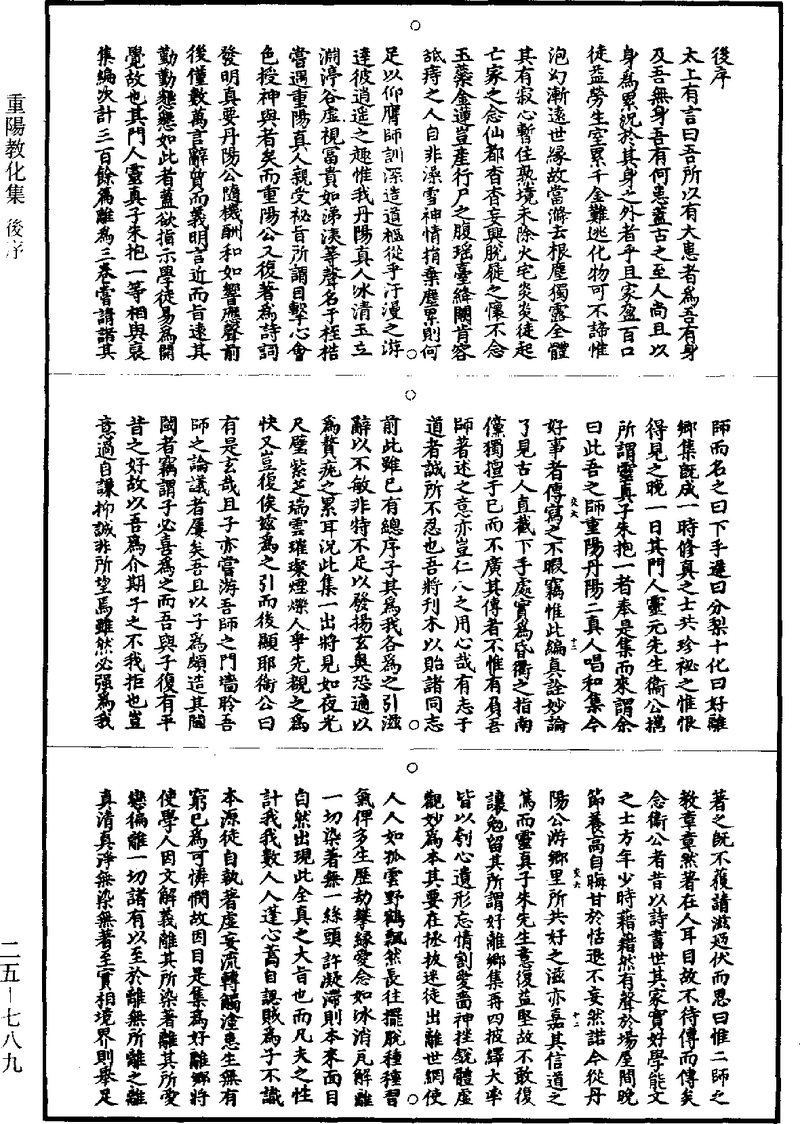 重陽教化集 後序
二五—七八九
後序
太上有言曰吾所以有大患者爲吾有身
及吾無身吾有何患蓋古之至人尚且以
身爲累況於其身之外者乎且家盈百口
徒益勞生室累千金難逃化物可不諦惟
泡幻漸遠世緣故當滌去根塵獨露全體
其有寂心暫住熟境未除火宅炎炎徒起
亡家之念仙都杳杳妄興脫屣之懷不念
玉蘂金蓮豈產行尸之腹瑶臺絳闕肯容
舐痔之人自非澡雪神情捎棄塵累則何
足以仰膺師訓深造道樞從乎汗漫之游
達彼逍遥之趣惟我丹陽真人冰清玉立
淵渟谷虛視冨貴如涕洟等聲名于桎梏
嘗遇重陽真人親受祕旨所謂目擊心會
色授神與者矣而重陽公又復著爲詩詞
發明真要丹陽公隨機酬和如響應聲前
後僅數萬言辭質而義明言近而旨遠其
勤勤懇懇如此者蓋欲指示學徒易爲開
覺故也其門人靈真子朱抱一等相與裒
集編次計三百餘篇離爲三卷嘗請諸其
師而名之曰下手遲曰分梨十化曰好離
鄉集旣成一時修真之士共珍祕之惟恨
得見之晚一日其門人靈元先生衞公攜
所謂靈真子朱抱一者奉是集而來謂余
曰此吾之師重陽丹陽二真人唱和集今
交六 十一
好事者傳寫之不暇竊惟此編真詮妙論
了見古人直截下手處實爲昏衢之指南
儻獨擅于己而不廣其傳者不惟有負吾
師著述之意亦豈仁人之用心哉有志于
道者誠所不忍也吾將刋木以貽諸同志
前此雖已有總序子其爲我各爲之引滋
辭以不敏非特不足以發揚玄奥恐適以
爲贅疣之累耳況此集一出將見如夜光
尺璧紫芝瑞雲璀璨煙爍人爭先覩之爲
快又豈復俟兹爲之引而後顯耶衞公曰
有是玄哉且子亦當游吾師之門墻聆吾
師之論議者屢矣吾且以子爲頗造其閫
閾者竊謂子必喜爲之而吾與子復有平
昔之好故以吾爲介期子之不我拒也豈
意過自謙抑誠非所望焉雖然必强爲我
著之旣不獲請滋退伏而思曰惟二師之
教章章然著在人耳目故不待傳而傳矣
念衞公者昔以詩書世其家實好學能文
之士方年少時藉藉然有聲於場屋間晚
節養高自晦甘於恬退不妄然諾今從丹
交六 十二
陽公游鄉里所共好之滋亦嘉其信道之
篤而靈真子朱先生意復益堅故不敢復
讓勉留其所謂好離鄉集再四披繹大率
皆以刳心遺形忘情割愛嗇神挫銳體虛
觀妙爲本其要在拯拔迷徒出離世網使
人人如孤雲野鶴飄然長往擺脫種種習
氣俾多生歷劫攀緣愛念如冰消瓦解離
一切染著無一絲頭許凝滯則本來面目
自然出現此全真之大旨也而凡夫之性
計我我數人人蓬心蒿目認賊爲子不識
本源徒自執著虛妄流轉觸塗患生無有
窮已爲可憐憫故因目是集爲好離鄉將
使學人因文解義離其所染著離其所愛
戀徧離一切諸有以至於離無所離之離
真清真淨無染無著至實相境界則舉足